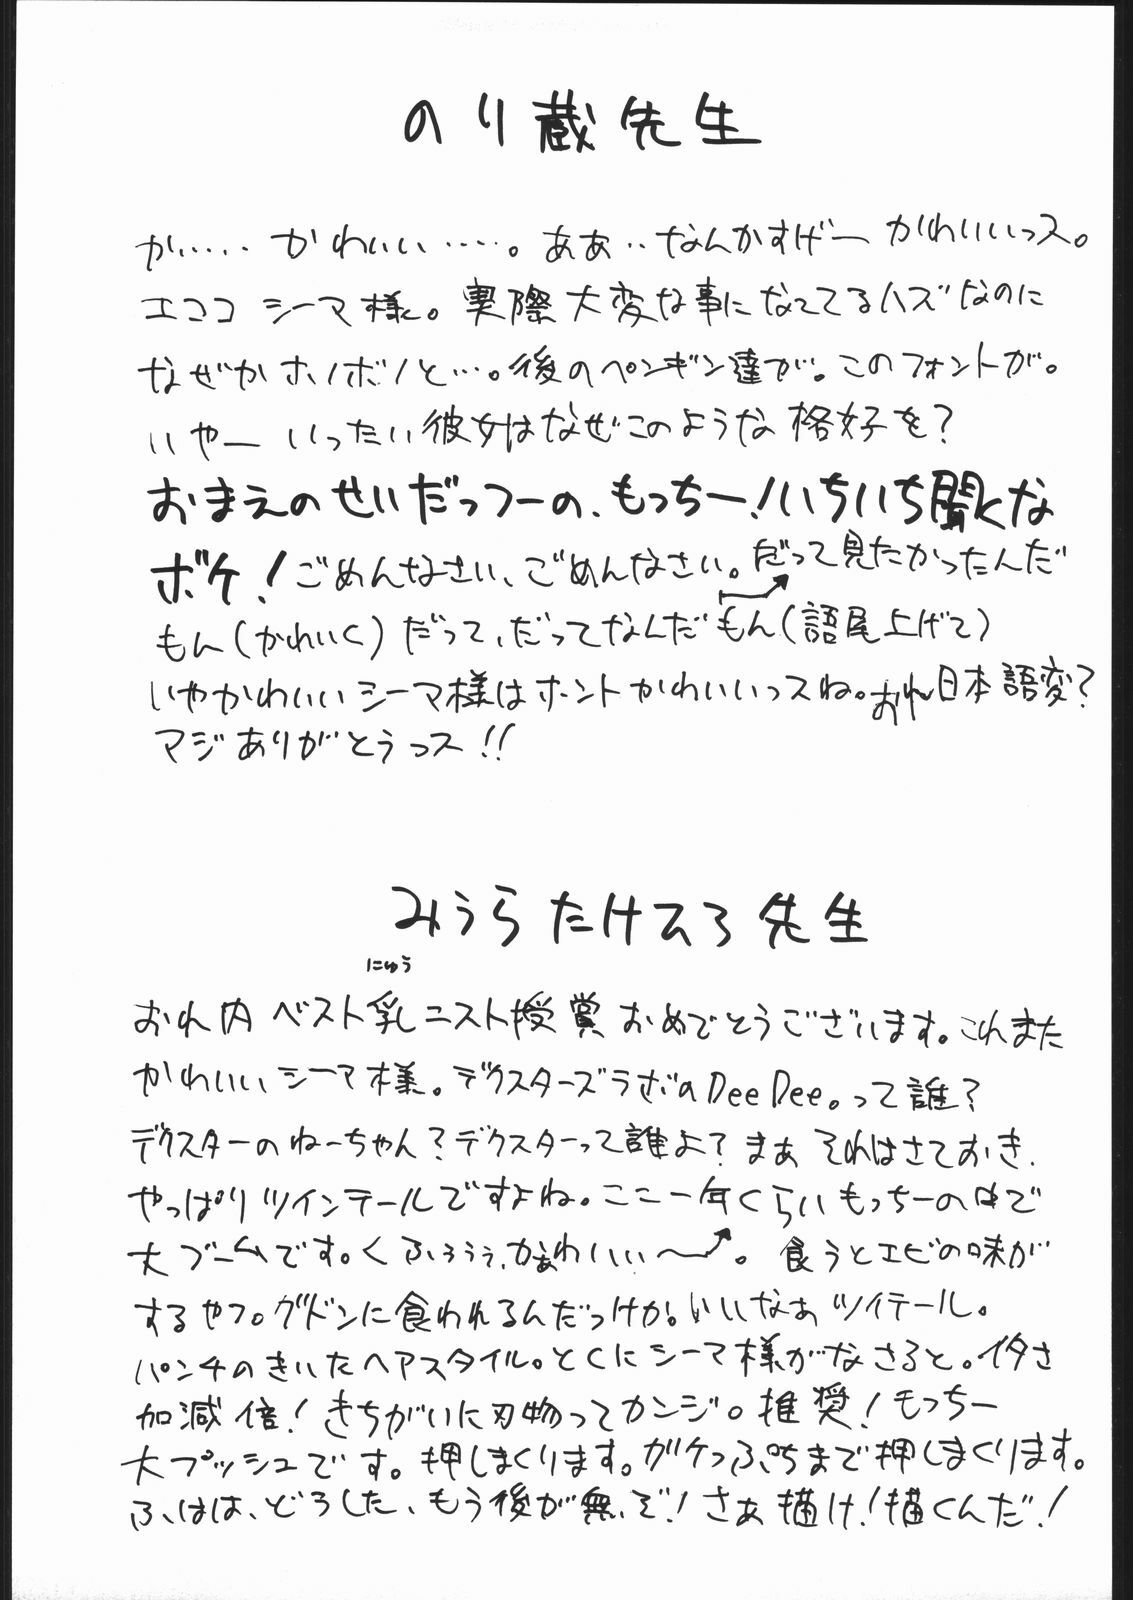 のり蔵先生
か‥‥‥かわいい‥‥‥。ああ‥なんかすげーかわいいっス。
エココ シーマ様。実際大変な事になってるハズなのに
なぜかホノボノと…。後のペンギン達が。このフォントが。
いやー いったい彼女はなぜこのような格好を?
おまえのせいだっつーの、もっちー!いちいち聞くな
ボケ!ごめんなさい、ごめんなさい。だって見たかったんだ
もん(かわいく)だって、だってなんだもん(語尾上げて)
いやかわいいシーマ様はホントかわいいっスね。おれ日本語変?
マジありがとうっス!!
みうらたけひろ先生
にゅう
おれ内ベスト乳ニスト授賞おめでとうございます。これまた
かわいいシーマ様。デクスターズラボのDee Dee。って誰?
デクスターのねーちゃん?デクスターって誰よ?まぁそれはさておき、
やっぱりツインテールですよね。ここ一年くらいもっちーの中で
大ブームです。くふぅぅぅ、かぁわいいー。食うとエビの味が
するやつ。グドンに食われるんだっけか。いいなぁツイテール。
パンチのきいたヘアスタイル。とくにシーマ様がなさると。イタさ
加減倍!きちがいに刃物ってカンジ。推奨!もっちー
大プッシュです。押しまくります。ガケっぷちまで押しまくります。
ふ、はは、どうした、もう後が無いぞ!さぁ描け!描くんだ!